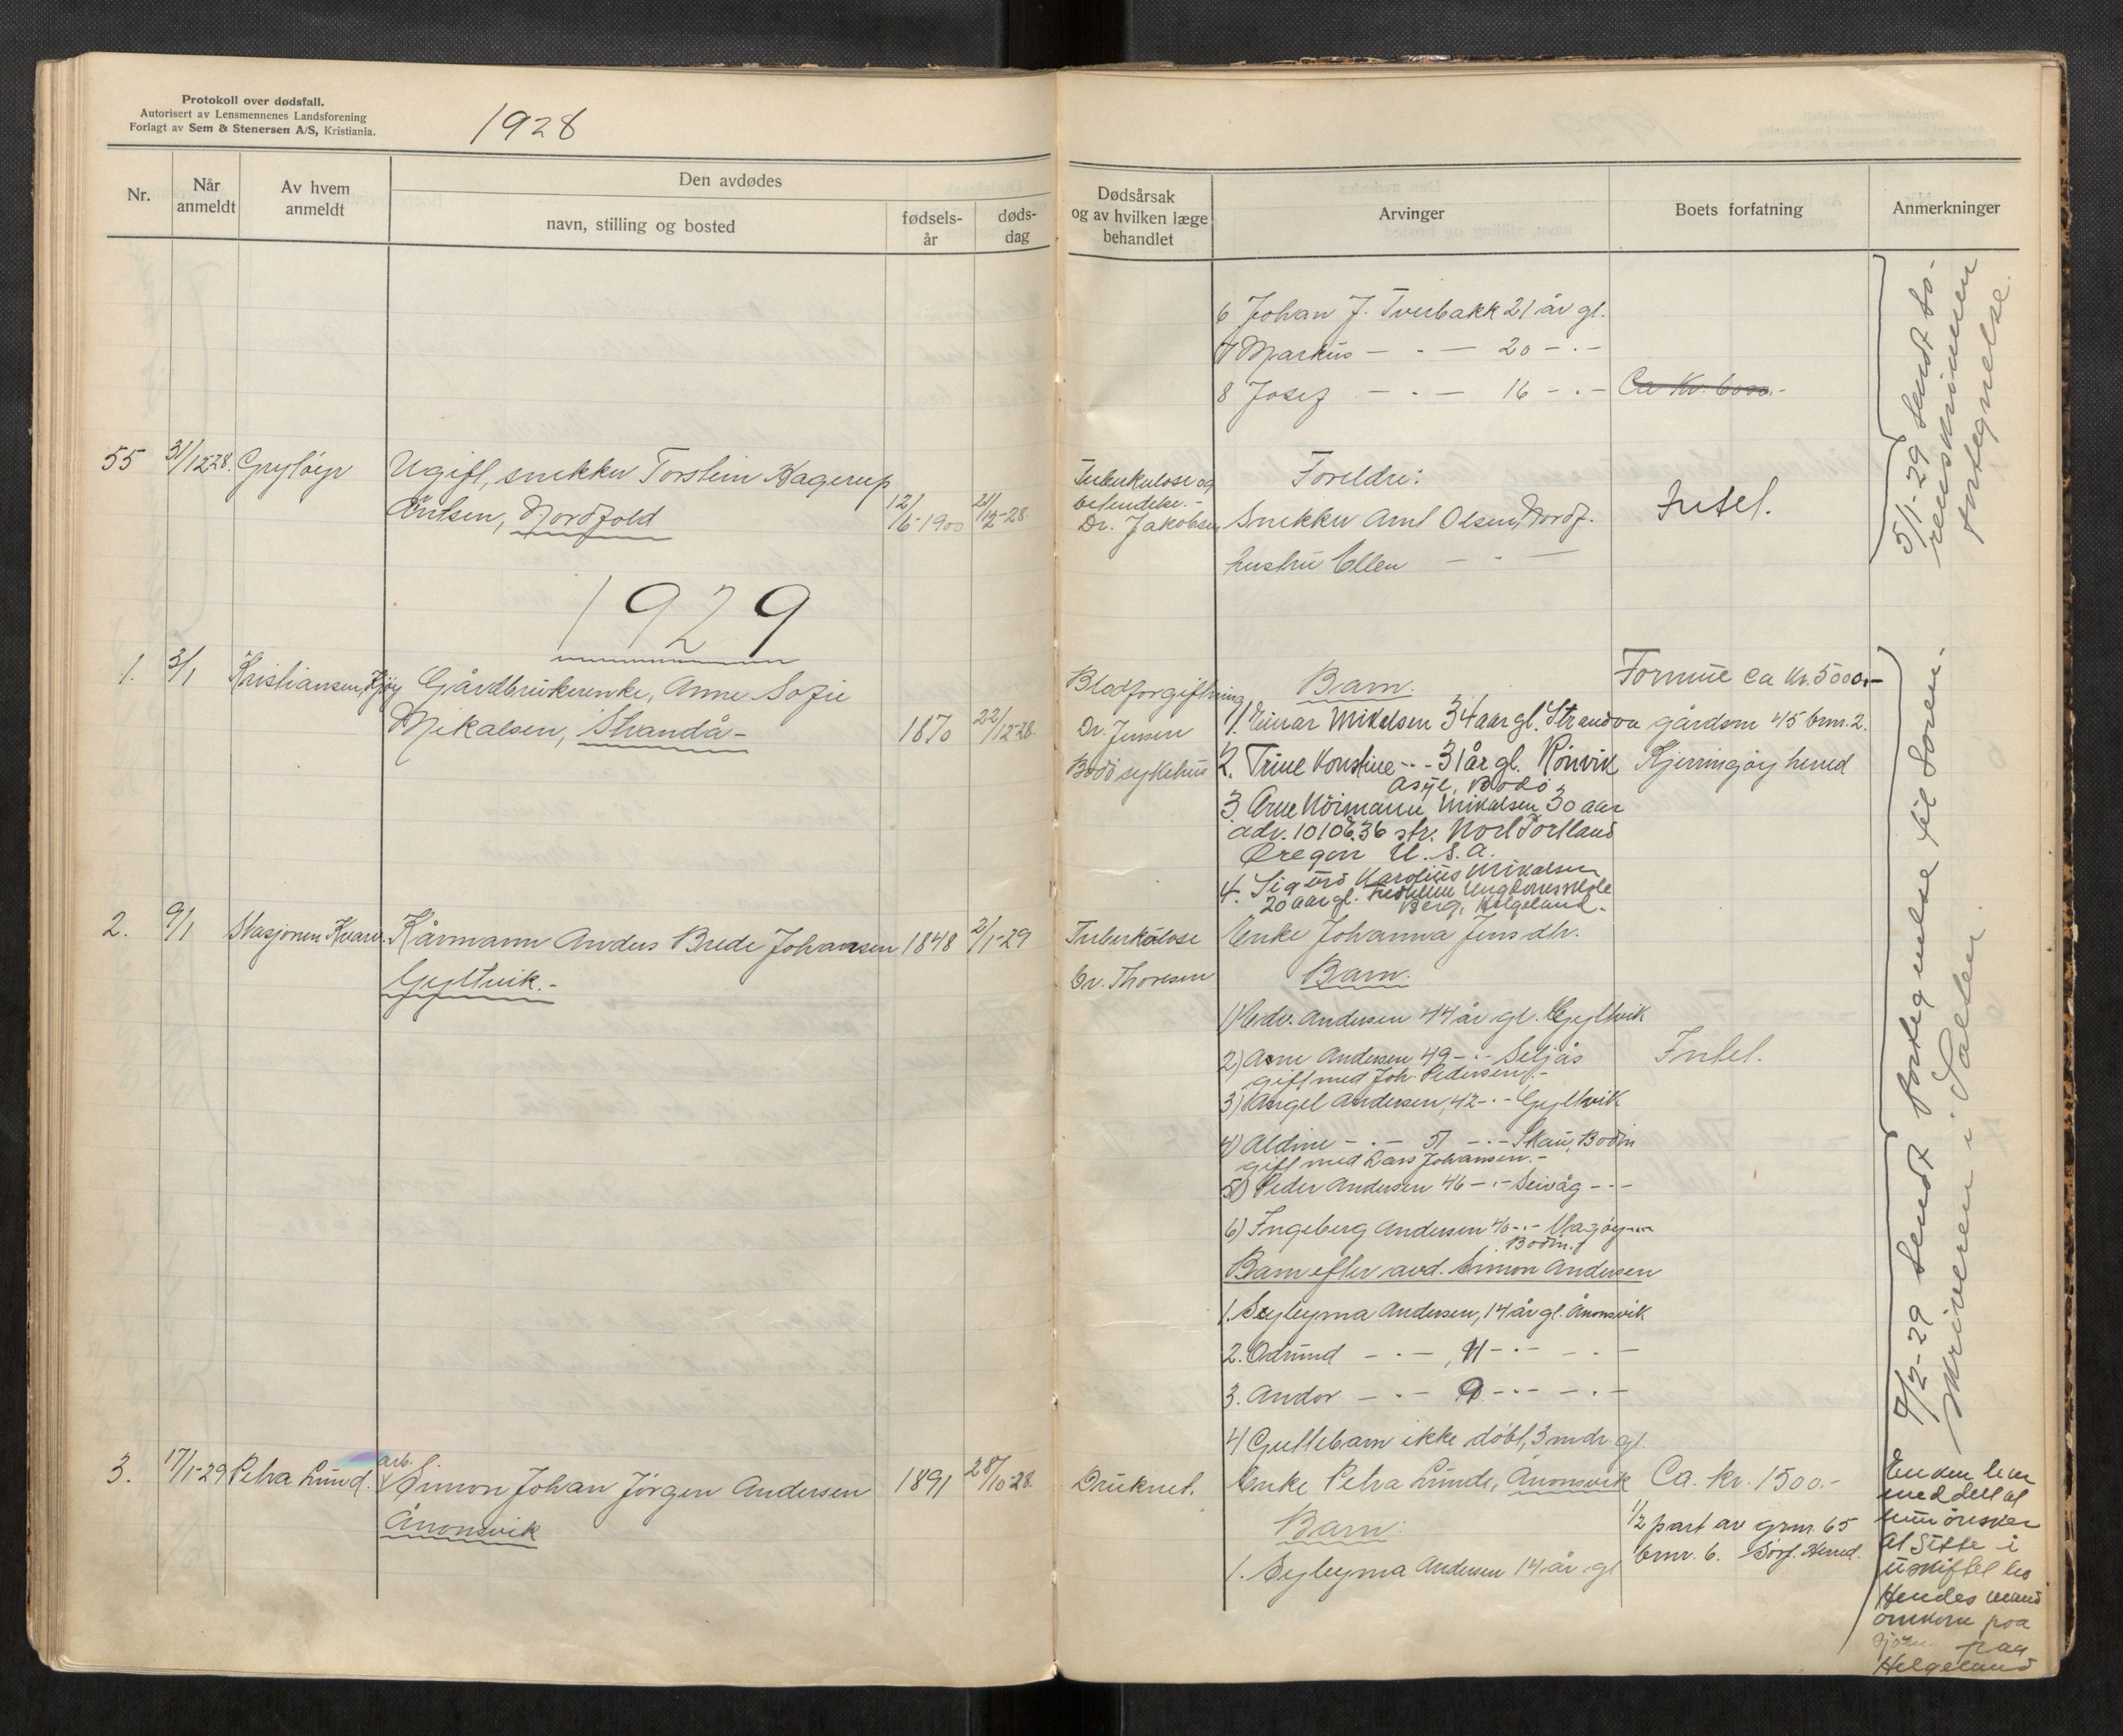 Protokoll over dødsfall.
Autorisert av Lensmennenes Landsforening
Forlagt av Sem & Stenersen A/S, Kristiania.
1928
Nr.
Når anmeldt
Av hvem anmeldt
Den avdødes
navn, stilling og bosted
fødsels-år
døds-dag
Dødsårsak og av hvilken læge behandlet
Arvinger
Boets forfatning
Anmerkninger
6 Johan J. Tverbakk 21 år gl.
7 Markus — · — 20 — · —
8 Josef — · — 16 — · — Ca Kr. 6000.-
5/1-29 sendt so-
renskriveren
fortegnelse.
55 31/12 28. Grytøyr Ugift, snekker Torstein Hagerup
Arntsen, Nordfold 12/6-1900 21/12-28.
Tuberkulose og
betendelse.-
Dr. Jakobsen
Foreldre:
Snekker Arnt Olsen, Nordf.
hustru Ellen — · —
Intet.
1929
1. 3/1 Kristiansen, Kjøy Gårdbrukerenke, Anne Sofie
Mikalsen, Strandå- 1870 22/12-28.
Blodforgiftning
Dr. Jensen
Bodø sykehus
Barn.
1. Einar Mikalsen 34 aar gl. Strandaa
2. Trine Konstine - · - 31 år gl. Rønvik
Asyl, Bodø
3. Arne Normann Mikalsen 30 aar
adr. 1010 E. 36 str. Nort Portland
Oregon U.S.A.
4. Sigurd Karolius Mikalsen
20 aar gl. Ungdomsskole
Berg, Helgeland.
Formue ca kr. 5000.-
gårdsnr 45 brnr. 2.
Kjerringøy herred
2. 9/1 Stasjonen Kvarv. Kårmann Anders Brede Johansen 1848 2/1-29
Gyltvik.-
Tuberkulose
Dr. Thoresen
Enke Johanna Jensdtr.
Barn.
1) Edv. Andersen 44 år gl. Gyltvik
2) Arne Andersen 49 - · - Seljås
gift med Joh. Pedersen.-
3) Angel Andersen, 42 - · - Gyltvik
4) Aldine — · — 51 — · — Skau, Bodin
gift med Lars Johansen.-
5) Peder Andersen 46 - · - Seivåg - · -
6) Ingeberg Andersen 40 - · -
Bodin.
Intet.
Barn efter avd. Simon Andersen
1. Seyleyma Andersen, 14 år gl. Ånonsvik
2. Odrund — · — 11 — · — — · —
3. Andor — · — 9 — · — — · —
4 Guttebarn ikke døbt, 3 mdr. gl.
7/2-29 Sendt fortegnelse til soren-
skriveren i Salten.
3. 17/1-29 Petra Lund. arb.
Simon Johan Jørgen Andersen 1891 28/10-28.
Ånonsvik
Druknet.
Enke Petra Lunde, Ånonsvik
Barn:
1. Seyleyma Andersen 14 år gl
Ca. kr. 1500.-
1/2 part av grnr. 65
brnr. 6. Sørf. Herred.
Enken lever
meddelt at
hun ønsker
at sitte i
uskiftet bo
Hendes mand
omkom paa
sjøen paa
Helgeland